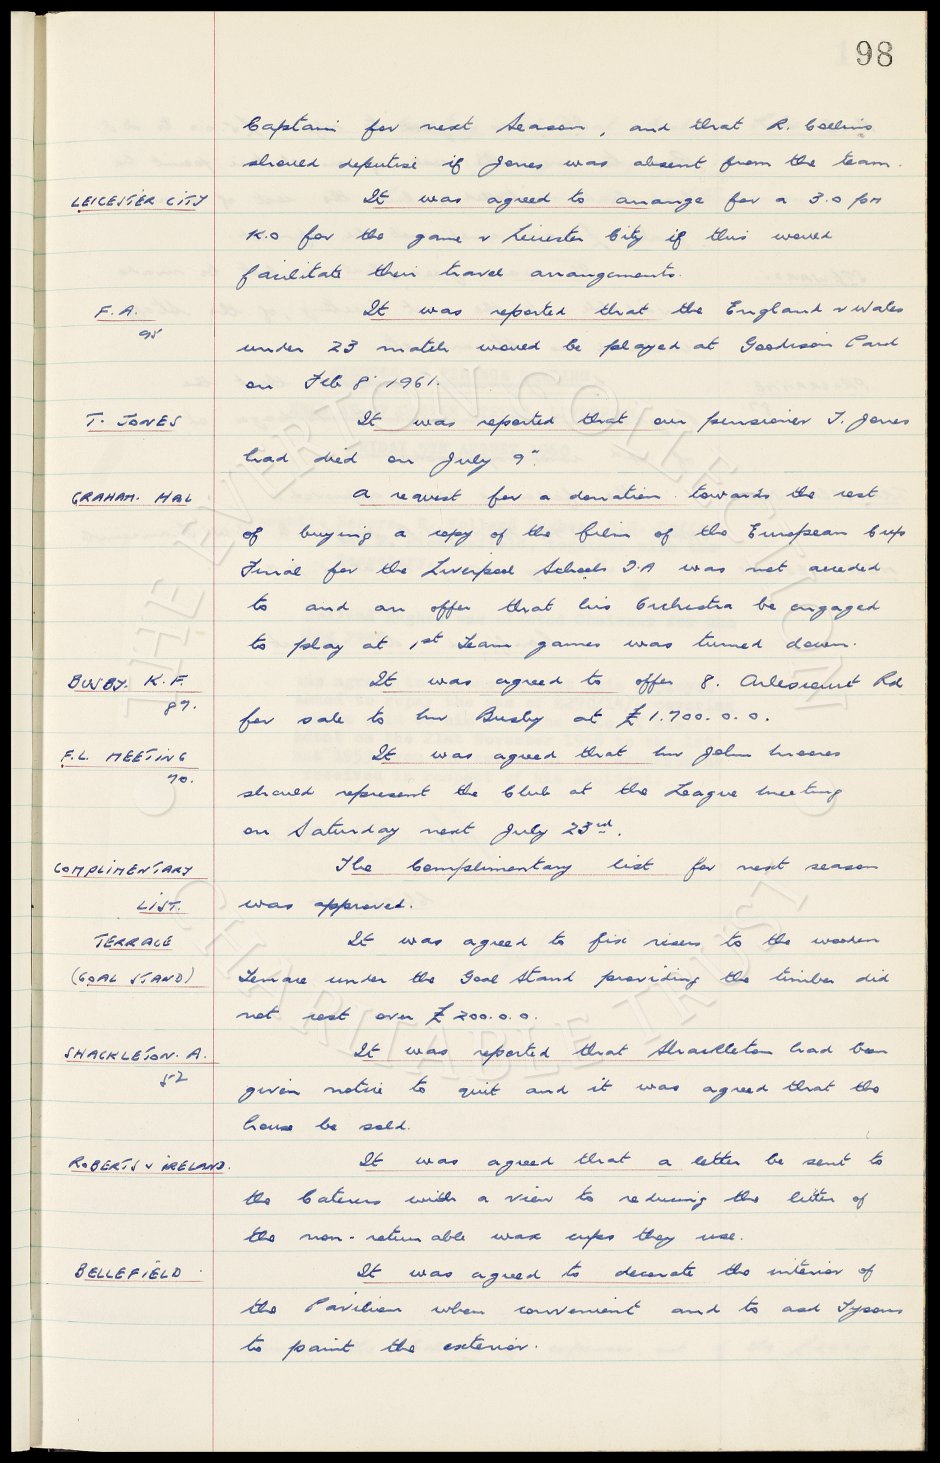 98
Captain for next Season, and that R. Collins
should deputise if Jones was absent from the team.
LEICESTER CITY It was agreed to arrange for a 3.0 pm
K.O for the game v Leicester City if this would
facilitate their travel arrangements.
F. A. It was reported that the England v Wales
95
under 23 match would be played at Goodison Park
on Feb 8' 1961.
T. JONES It was reported that our pensioner T. Jones
had died on July 9".
GRAHAM. HAL A request for a donation towards the cost
of buying a copy of the film of the European Cup
Final for the Liverpool Schools F.A was not acceded
to and an offer that his Orchestra be engaged
to play at 1st Team games was turned down.
BUSBY. K. F. It was agreed to offer 8. Rd
87.
for sale to Mr Busby at £1.700.0.0.
F.L. MEETING It was agreed that Mr John Moores
70.
should represent the Club at the League Meeting
on Saturday next July 23rd.
COMPLIMENTARY The Complimentary list for next season
LIST. was approved.
TERRACE It was agreed to fix risers to the wooden
(GOAL STAND) Terrace under the Goal Stand providing the timber did
not cost over £200.0.0.
SHACKLETON. A. It was reported that Shackleton had been
52
given notice to quit and it was agreed that the
house be sold.
ROBERTS v IRELAND. It was agreed that a letter be sent to
the Caterers with a view to reducing the litter of
the non-returnable wax cups they use.
BELLEFIELD It was agreed to decorate the interior of
the Pavilion when convenient and to ask Tysons
to paint the exterior.
THE EVERTON COLLECTION
CHARITABLE TRUST